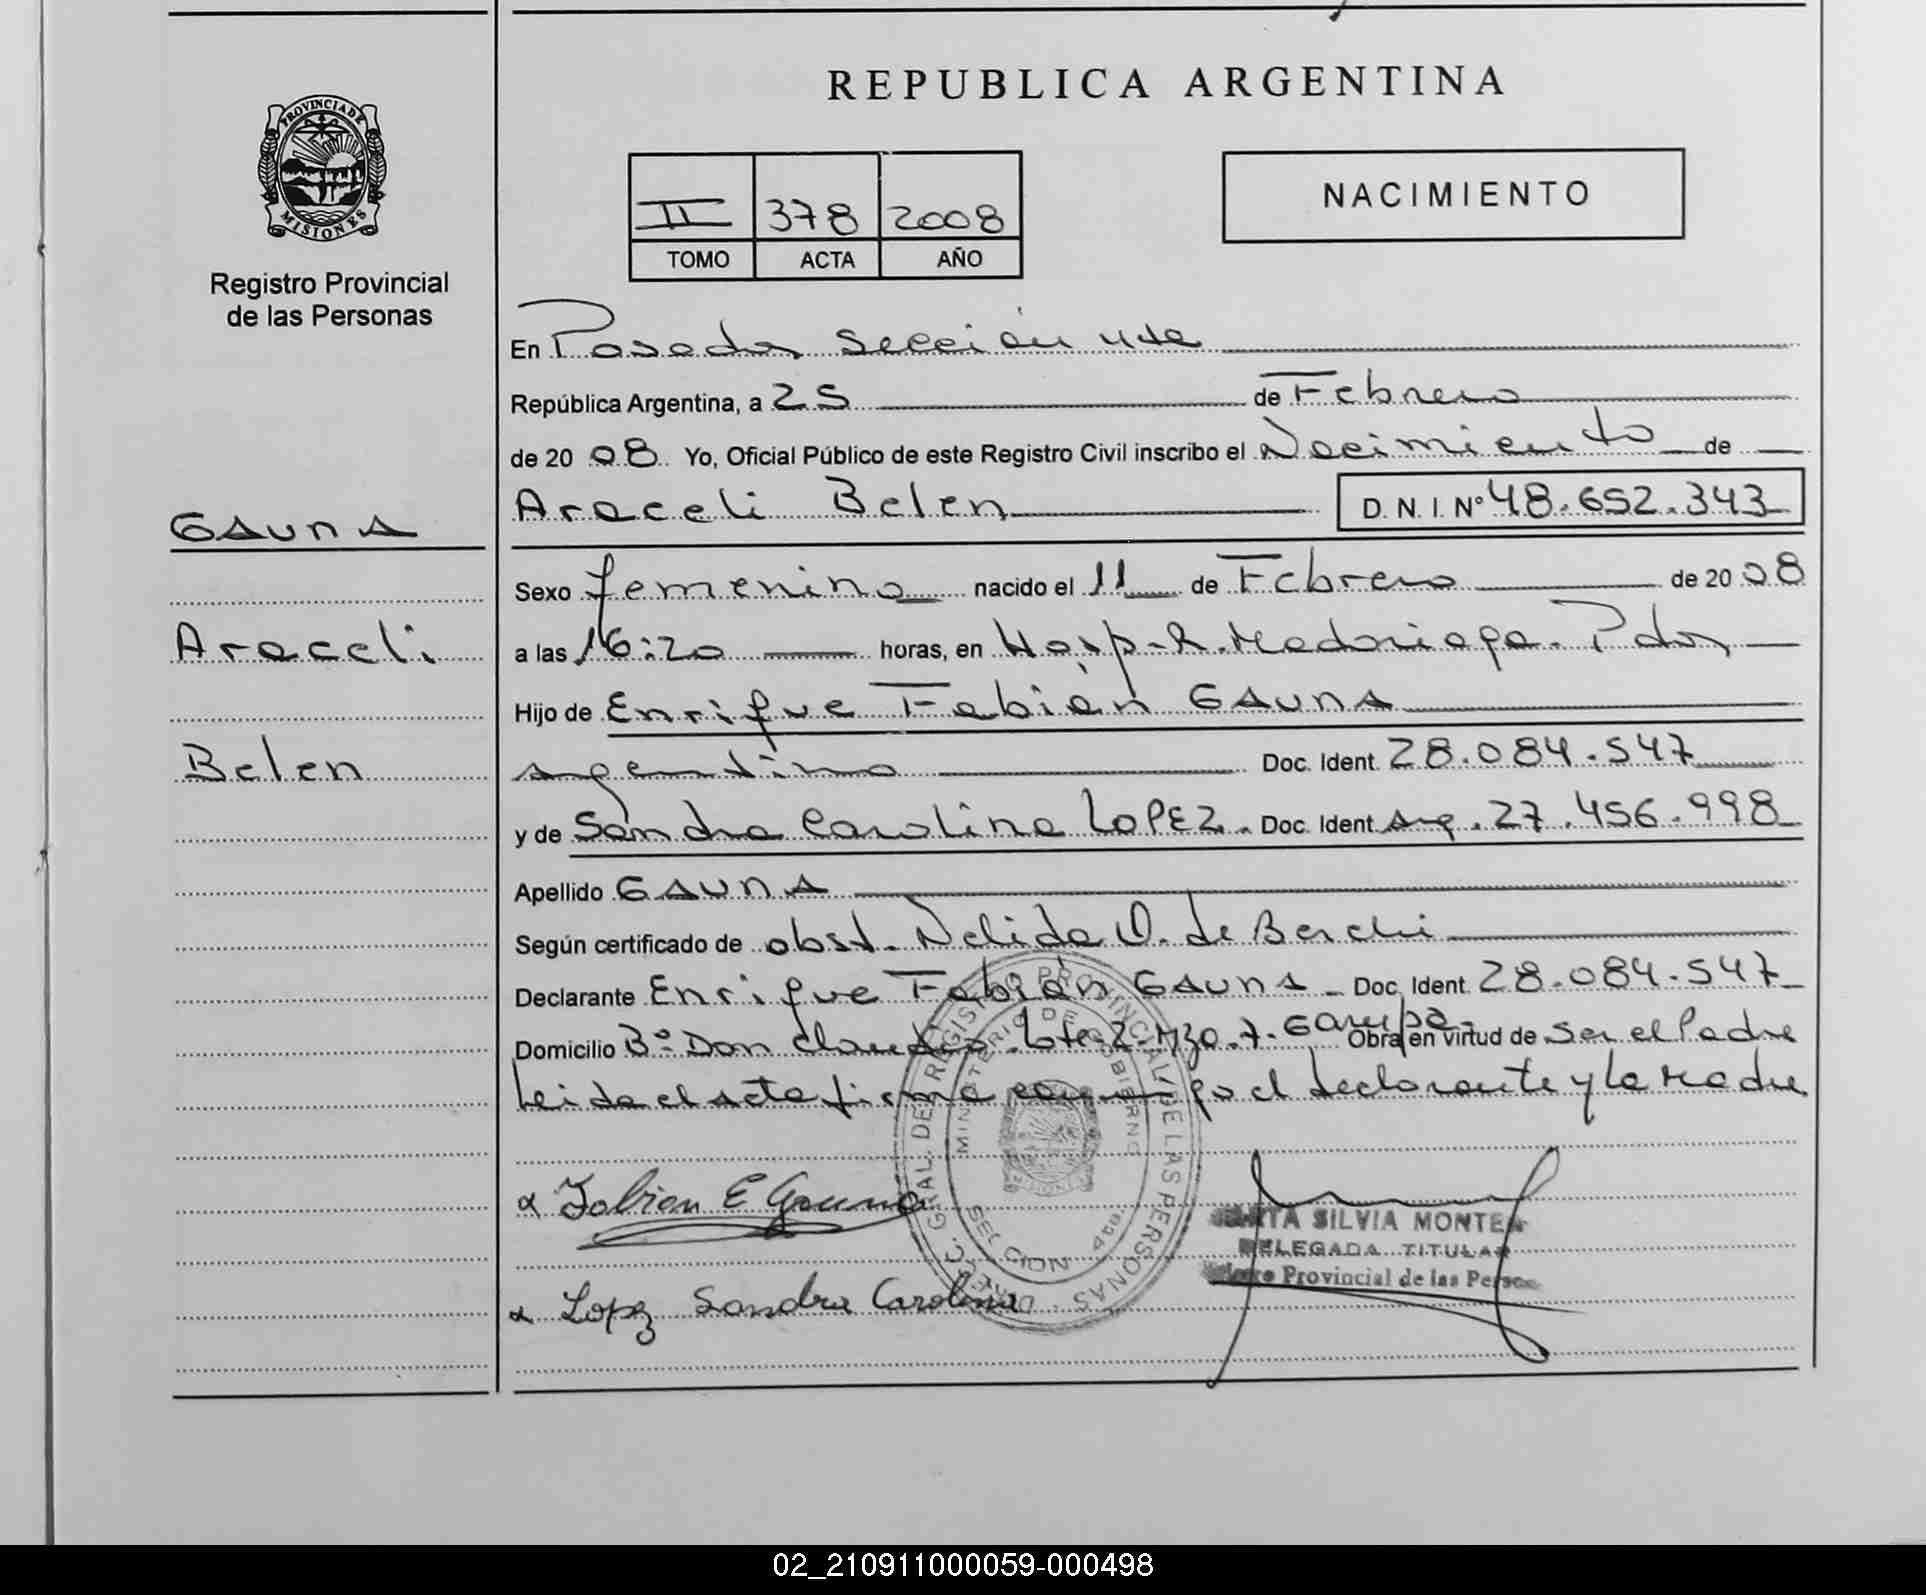 REPUBLICA ARGENTINA
PROVINCIA DE MISIONES
Registro Provincial
de las Personas
II 378 2008
TOMO ACTA AÑO
NACIMIENTO
En Posadas sección 4ta
República Argentina, a 25 de Febrero
de 20 08 Yo, Oficial Público de este Registro Civil inscribo el Nacimiento de
Araceli Belen D. N. I. N° 48.652.343
GAUNA
Araceli
Belen
Sexo femenino nacido el 11 de Febrero de 20 08
a las 16:20 horas, en Hosp. R. Madariaga. Pdas
Hijo de Enrique Fabián GAUNA
argentino Doc. Ident. 28.084.547
y de Sandra Carolina LOPEZ. Doc. Ident. arg. 27.456.998
Apellido GAUNA
Según certificado de obst. Nelida O. de Berchi
Declarante Enrique Fabián GAUNA Doc. Ident. 28.084.547
Domicilio B° Don Claudio Lote 2 Mza. 7. Garupa. Obra en virtud de ser el Padre
Leida el acta firma conmigo el declarante y la Madre
DIREC. GRAL. DEL REGISTRO PROVINCIAL DE LAS PERSONAS
MINISTERIO DE GOBIERNO
SECCION 4ta
Fabian E Gauna
SILVIA MONTE
DELEGADA TITULAR
Provincial de las Person
Lopez Sandra Carolina
02_210911000059-000498